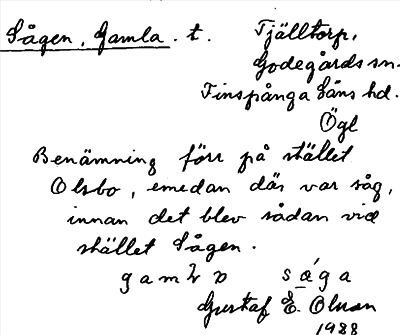 Sågen, Gamla . t. Tjälltorp,
Godegårds sn.
Finspånga läns hd.
Ögl
Benämning förr på stället
Olsbo, emedan där var såg,
innan det blev sådan vid
stället Sågen.
Gustaf E. Olsson
1988